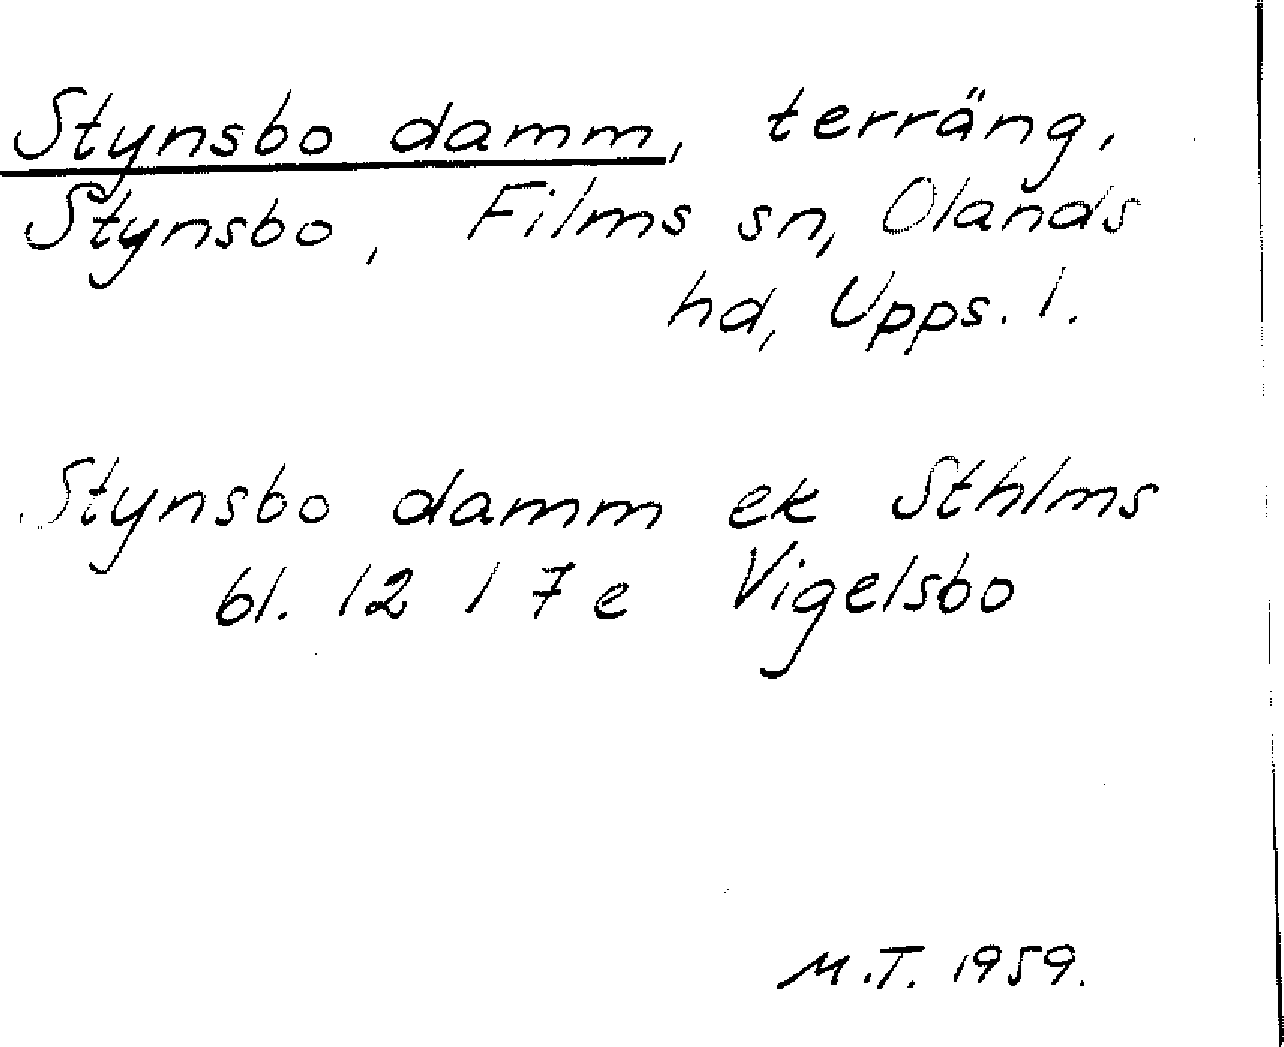 Stynsbo damm, terräng,
Stynsbo, Films sn, Olands
hd, Upps. l.
Stynsbo damm ek Sthlms
bl. 12 I 7 e Vigelsbo
M.T. 1959.